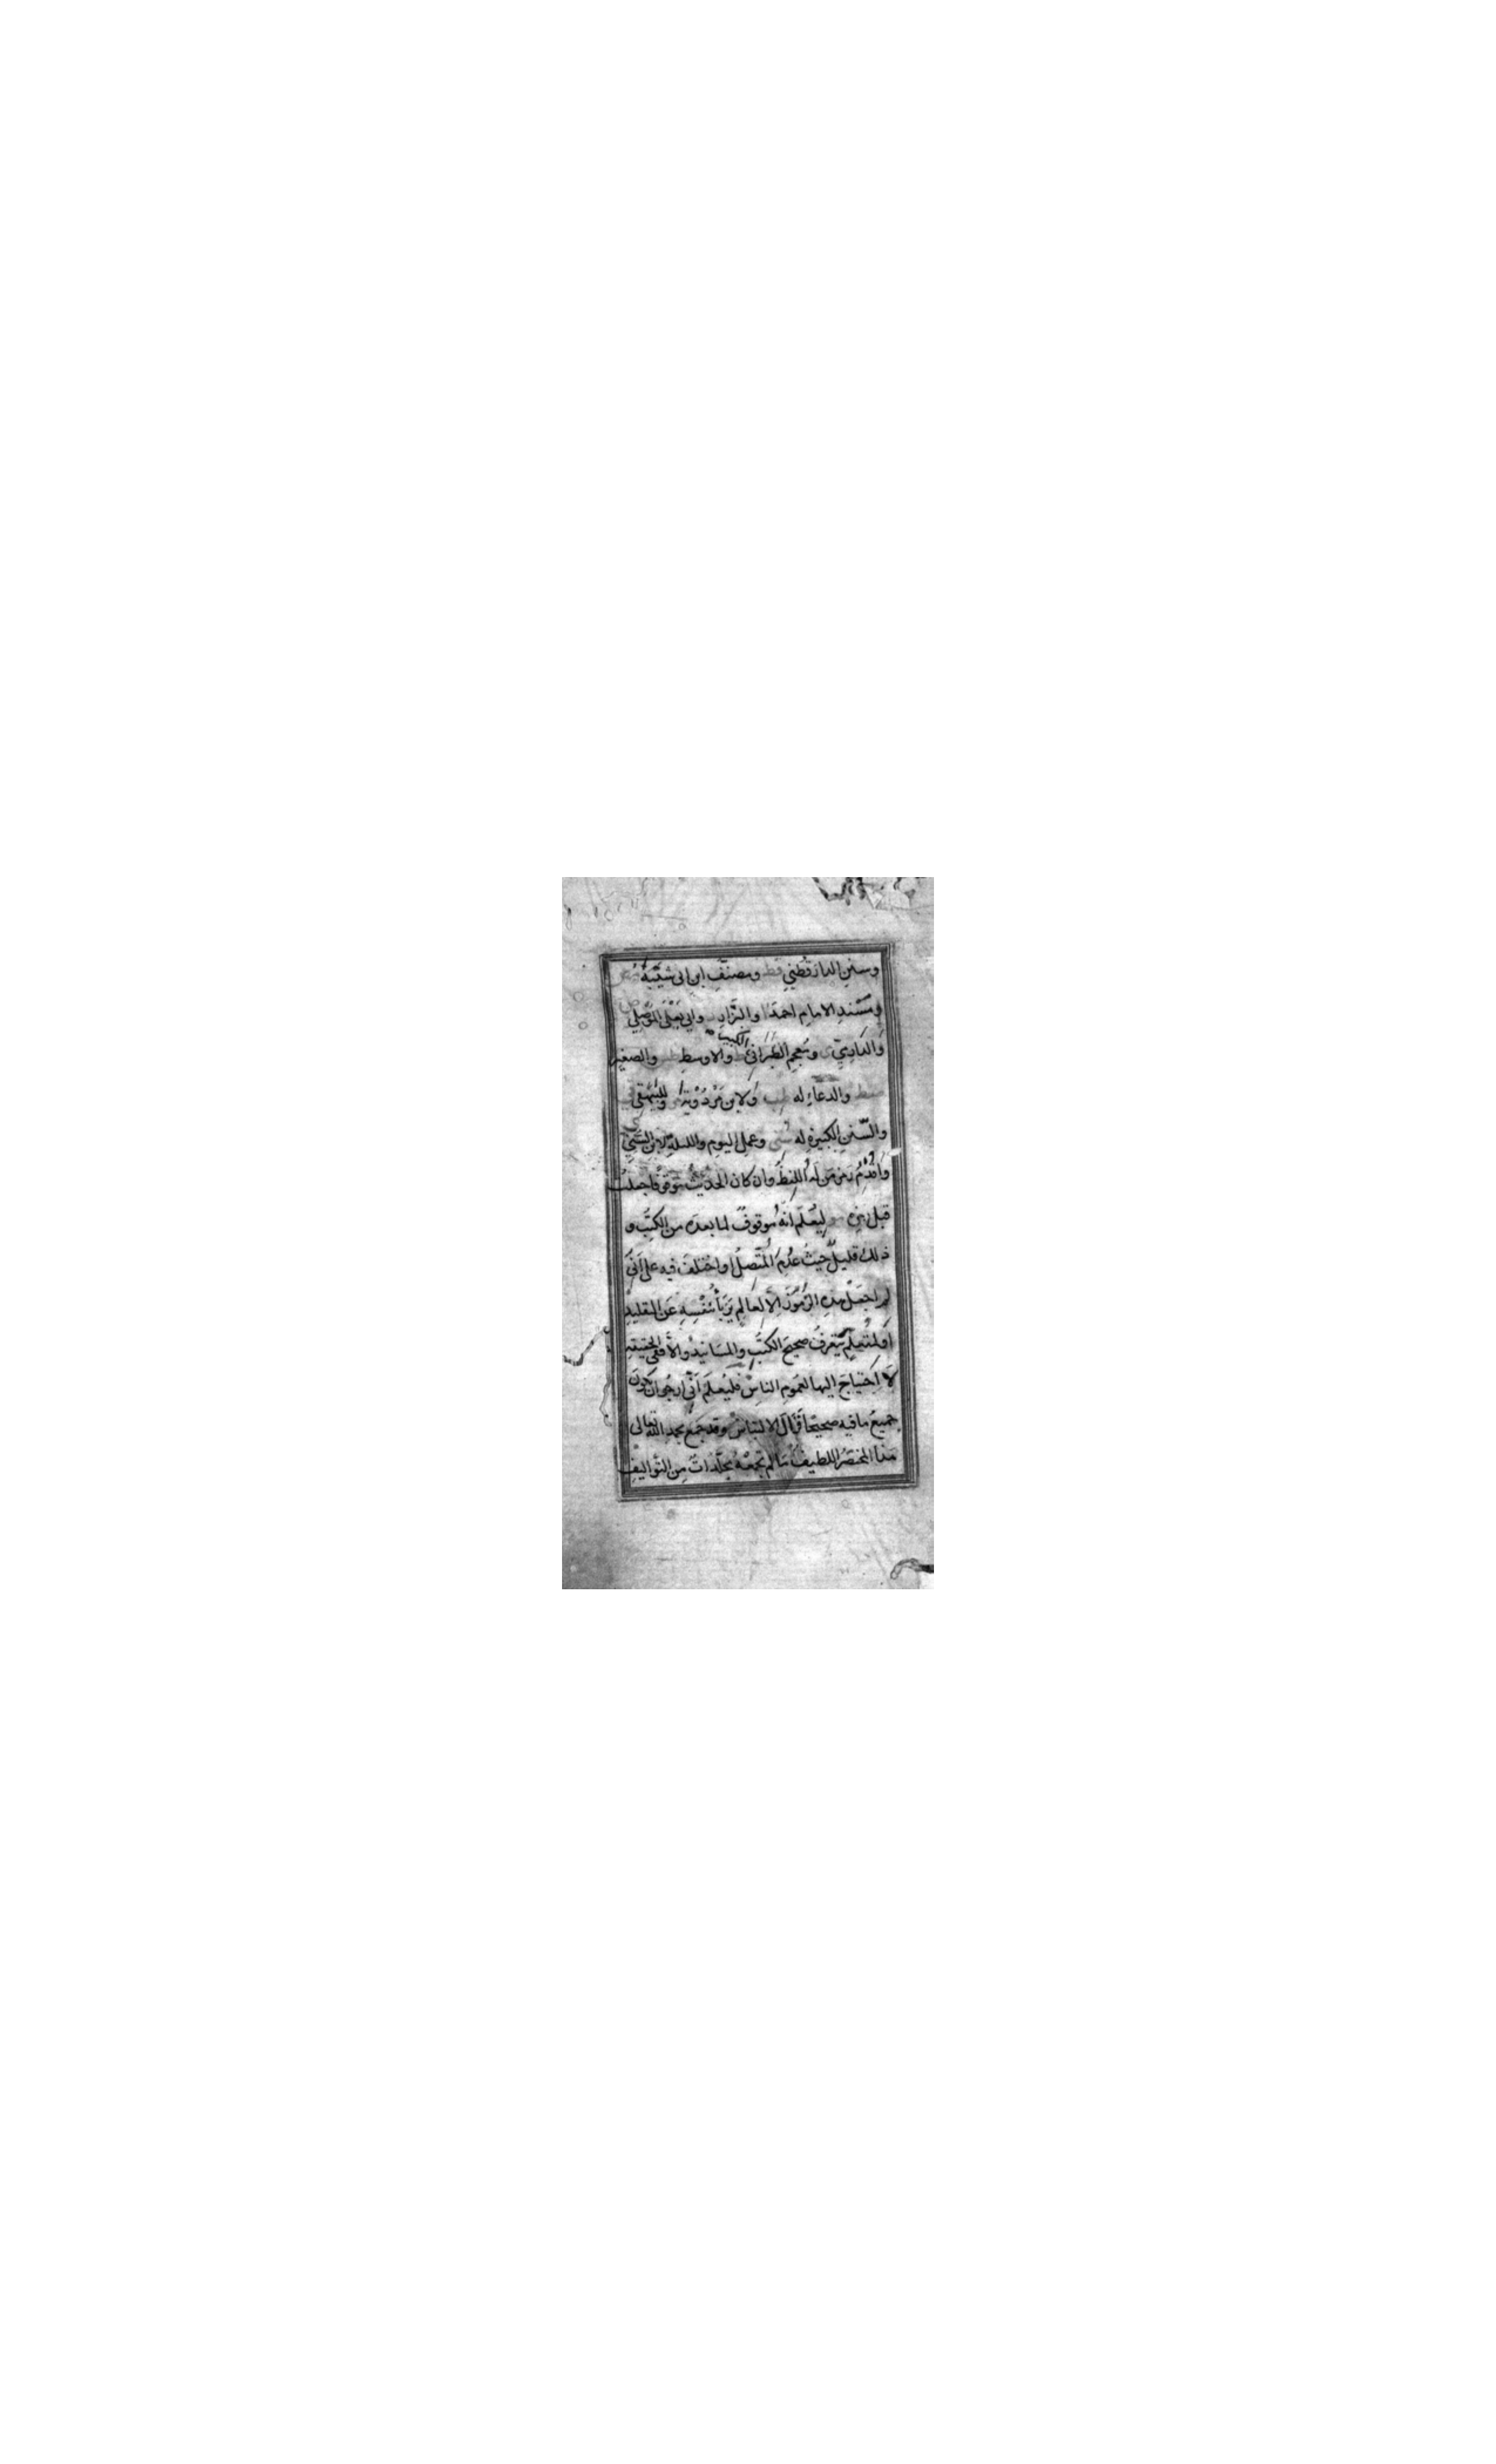 وسننِ الدارقُطْنِي قط ومصنَّفِ ابنِ ابى شَيْبَةَ مص
ومُسْندِ الامامِ احمدَ ا والبزَّارِ وابى يَعْلَى المَوْصِلِي ص
وَالدَارِمِيّ مى ومُعجمِ الطَبَرَانِيّ الكبيرِ ط والاوسطِ طس والصغيرِ
صط والدعَاءِ له طب وَلابن مَرْدُوْيَةَ مر وللبَيْهَقِى قى
والسّننِ الكبيرِ له سنى وعملِ اليومِ والليلةِ لابن السُّنِّيِّ ى
وَأُقَدِّمُ رمز مَن لَهُ اللفظُ وان كان الحديثُ مَوقوفًا جعلتُ
قبل رمزه مو ليُعْلَمَ انّه مُوقوفٌ لما بعدَه من الكتبِ و
ذلك قليلٌ حيثُ عُدِمَ المُتَّصلُ او اختلفَ فيه على اَنِّى
لم اجعَلْ هذهِ الرُّمُوْزَ الاّ لِعَالِمٍ يَرْبَأُ بنَفْسِهِ عَن التقليدِ
اَو لمتُعلِّمٍ يَعْرِفُ صحيحَ الكتُبِ والمسَانيدِ والاَّ ففى الحقيقةِ
لَا اِحْتياجَ اليها لعُمومِ الناسِ فليُعلَمْ اَنِّى ارجُو ان يكونَ
جميعُ ما فيه صحيحًا فَزَالَ الالتباسُ وقد جَمَعَ بحمدِ اللهِ تعالى
هذا المختصرُ اللطيفُ مَا لم تَجْمَعْهُ مُجلَّدَاتٌ مِن التَواليفِ